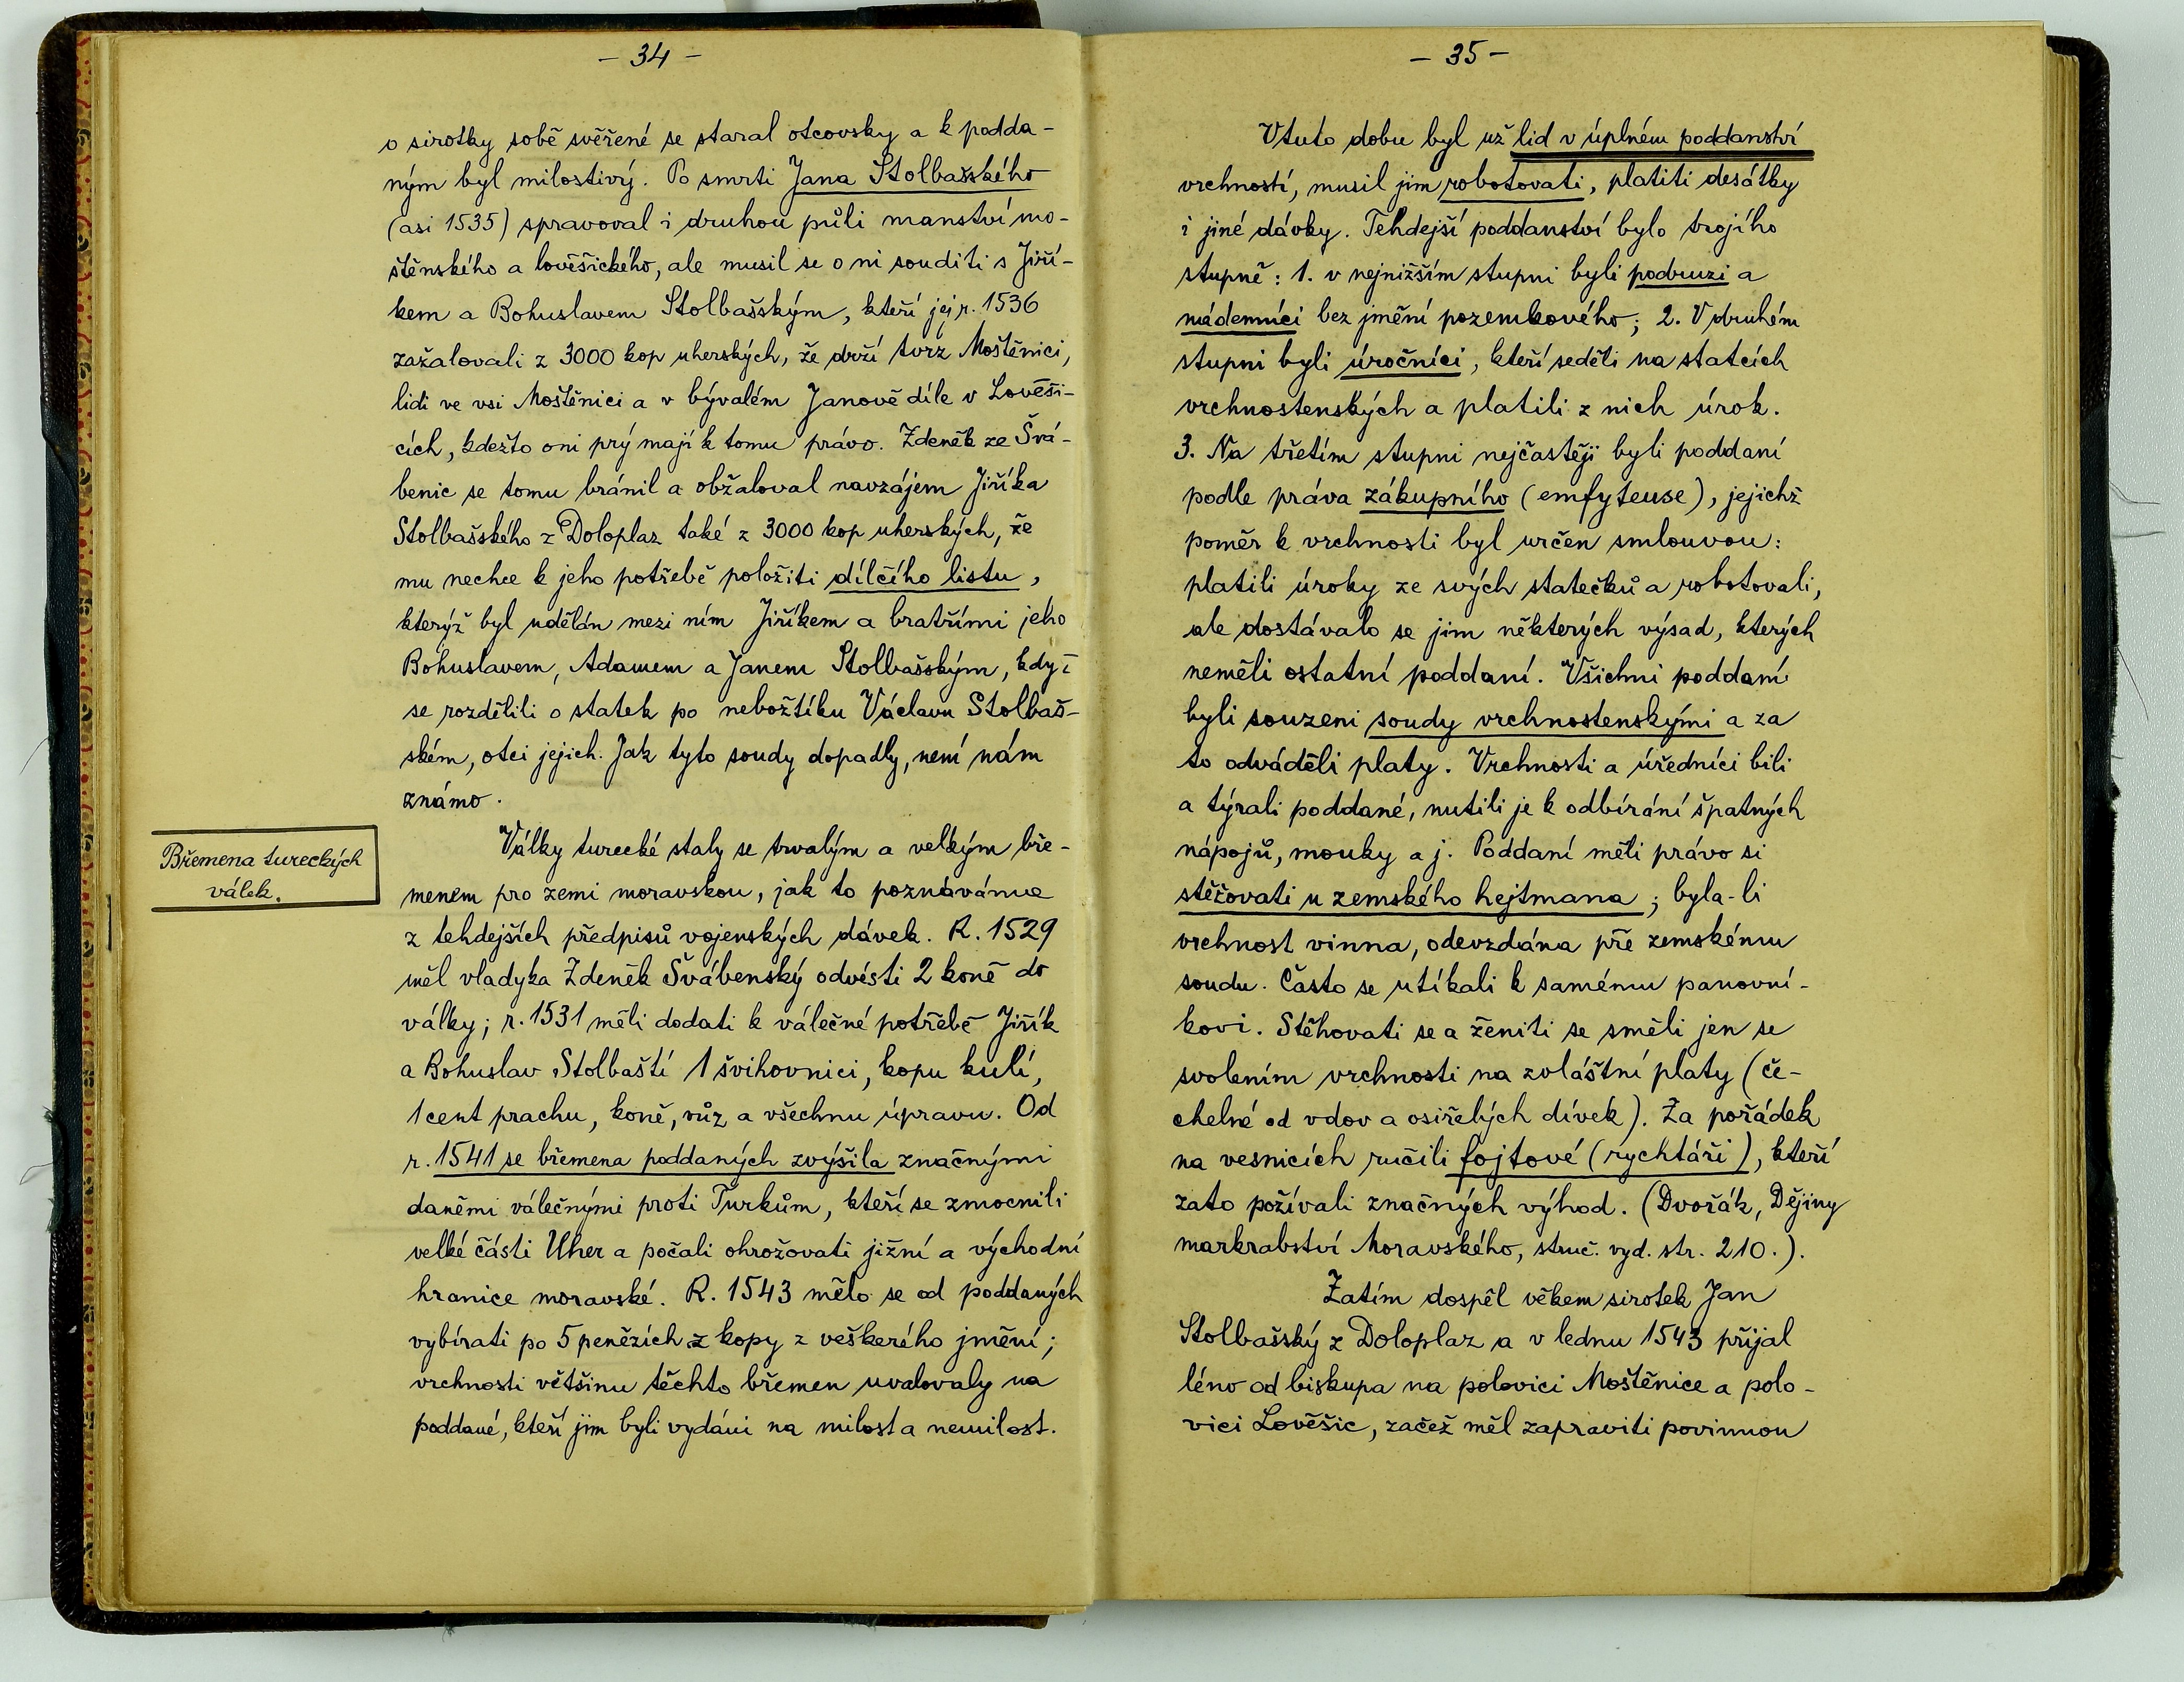 - 34 -
o sirotky sobě svěřené se staral otcovsky a k podda-
ným byl milostivý. Po smrti Jana Stolbašského
(asi 1535) spravoval i druhou půli manství mo-
štěnského a lověšického, ale musil se o ni souditi s Jiří-
kem a Bohuslavem Stolbašským, kteří jej r. 1536
zažalovali z 3000 kop uherských, že drží tvrz Moštěnici,
lidi ve vsi Moštěnici a v bývalém Janově díle v Lověši-
cích, kdežto oni prý mají k tomu právo. Zdeněk ze Švá-
benic se tomu bránil a obžaloval navzájem Jiříka
Stolbašského z Doloplaz také z 3000 kop uherských, že
mu nechce k jeho potřebě položiti dílčího listu,
kterýž byl udělán mezi ním Jiříkem a bratřími jeho
Bohuslavem, Adamem a Janem Stolbašským, když
se rozdělili o statek po nebožtíku Václavu Stolbaš-
ském, otci jejich. Jak tyto soudy dopadly, není nám
známo.
Břemena tureckých
válek.
Války turecké staly se trvalým a velkým bře-
menem pro zemi moravskou, jak to poznáváme
z tehdejších předpisů vojenských dávek. R. 1529
měl vladyka Zdeněk Švábenský odvésti 2 koně do
války; r. 1531 měli dodati k válečné potřebě Jiřík
a Bohuslav Stolbaští 1 švihovnici, kopu kulí,
1 cent prachu, koně, vůz a všechnu úpravu. Od
r. 1541 se břemena poddaných zvýšila značnými
daněmi válečnými proti Turkům, kteří se zmocnili
velké části Uher a počali ohrožovati jižní a východní
hranice moravské. R. 1543 mělo se od poddaných
vybírati po 5 penězích z kopy z veškerého jmění;
vrchnosti většinu těchto břemen uvalovaly na
poddané, kteří jim byli vydáni na milost a nemilost.
- 35 -
V tuto dobu byl už lid v úplném poddanství
vrchností, musil jim robotovati, platiti desátky
i jiné dávky. Tehdejší poddanství bylo trojího
stupně: 1. v nejnižším stupni byli podruzi a
nádenníci bez jmění pozemkového; 2. V druhém
stupni byli úročníci, kteří seděli na statcích
vrchnostenských a platili z nich úrok.
3. Na třetím stupni nejčastěji byli poddaní
podle práva zákupního (emfyteuse), jejichž
poměr k vrchnosti byl určen smlouvou:
platili úroky ze svých statečků a robotovali,
ale dostávalo se jim některých výsad, kterých
neměli ostatní poddaní. Všichni poddaní
byli souzeni soudy vrchnostenskými a za
to odváděli platy. Vrchnosti a úředníci bili
a týrali poddané, nutili je k odbírání špatných
nápojů, mouky a j. Poddaní měli právo si
stěžovati u zemského hejtmana; byla-li
vrchnost vinna, odevzdána pře zemskému
soudu. Často se utíkali k samému panovní-
kovi. Stěhovati se a ženiti se směli jen se
svolením vrchnosti na zvláštní platy (če-
chelné od vdov a osiřelých dívek). Za pořádek
na vesnicích ručili fojtové (rychtáři), kteří
zato požívali značných výhod. (Dvořák, Dějiny
markrabství Moravského, struč. vyd. str. 210.).
Zatím dospěl věkem sirotek Jan
Stolbašský z Doloplaz a v lednu 1543 přijal
léno od biskupa na polovici Moštěnice a polo-
vici Lověšic, začež měl zapraviti povinnou